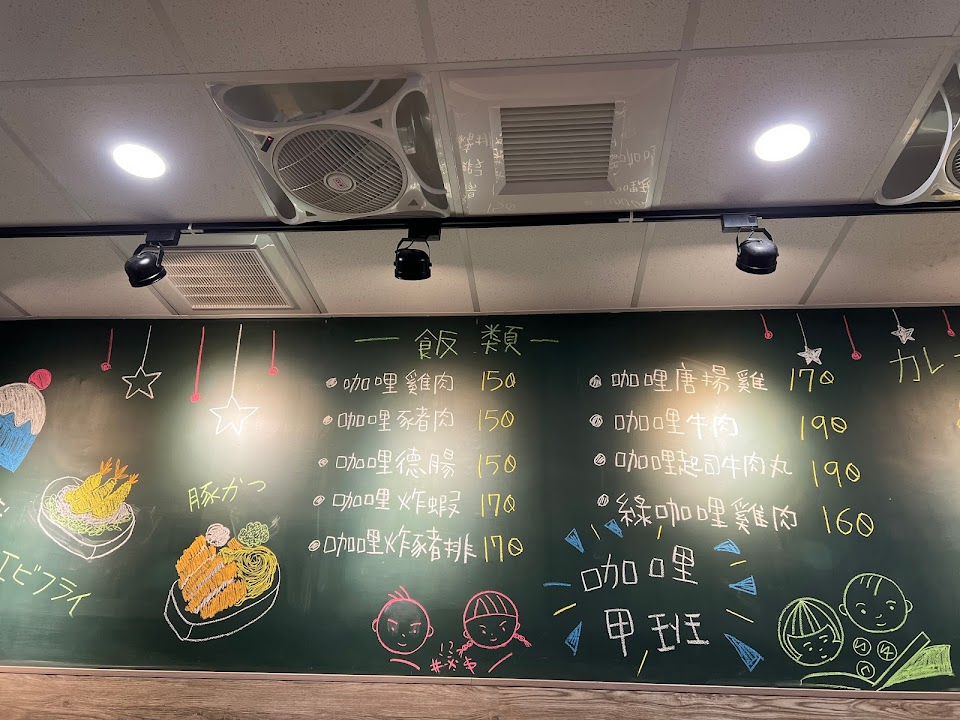 飯類
咖哩雞肉 150
咖哩豬肉 150
咖哩德腸 150
咖哩炸蝦 170
咖哩炸豬排 170
咖哩唐揚雞 170
咖哩牛肉 190
咖哩起司牛肉丸 190
綠咖哩雞肉 160
咖哩
甲班
豚かつ
エビフライ
カレ
!?
#*$